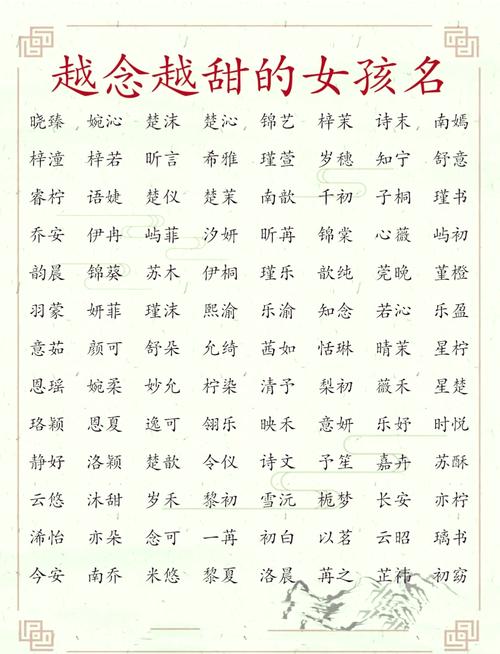 越念越甜的女孩名
晓臻 婉沁 楚沫 楚沁 锦艺 梓茉 诗末 南嫣
梓潼 梓若 昕言 希雅 瑾萱 岁穗 知宁 舒意
睿柠 语婕 楚仪 楚茉 南歆 千初 子桐 瑾书
乔安 伊冉 屿菲 汐妍 昕苒 锦棠 心薇 屿初
韵晨 锦葵 苏木 伊桐 瑾乐 歆纯 莞晚 堇橙
羽蒙 妍菲 瑾沫 熙渝 乐渝 知念 若沁 乐盈
意茹 颜可 舒朵 允绮 茜如 恬琳 晴茉 星柠
恩瑶 婉柔 妙允 柠染 清予 梨初 薇禾 星楚
珞颖 恩夏 逸可 翎乐 映禾 意妍 乐妤 时悦
静好 洛颖 楚歆 令仪 诗文 予笙 嘉卉 苏酥
云悠 沐甜 岁禾 黎初 雪沅 栀梦 长安 亦柠
浠怡 亦朵 念可 一苒 初白 以茗 云昭 璃书
今安 南乔 米悠 黎夏 洛晨 苒之 芷祎 初窈